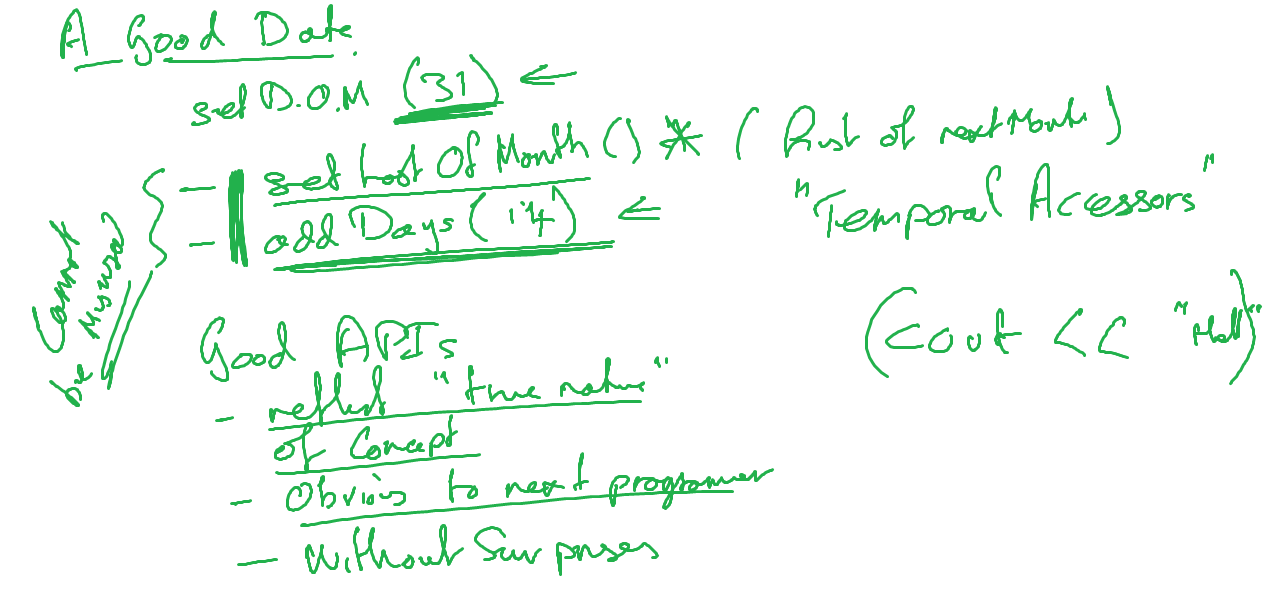 A Good Date
set D.O.M (31) ←
- set Last Of Month () * (First of next Month)
"Temporal Accessors"
- add Days (14) ←
Cannot
be Misused
(Cout << "Hell")
Good APIs
- reflect "true nature"
of Concept
- Obvious to next programmer
- Without Surprises